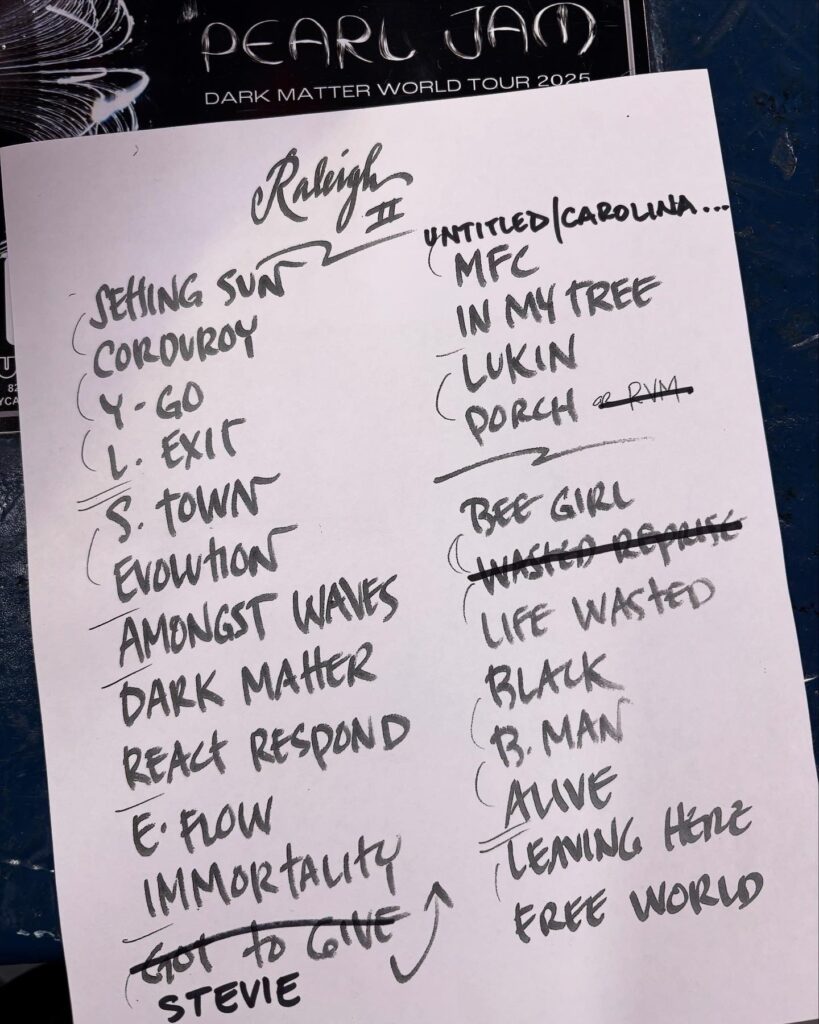 PEARL JAM
DARK MATTER WORLD TOUR 2025
Raleigh
II
SETTING SUN
CORDUROY
Y-GO
L. EXIT
S. TOWN
EVOLUTION
AMONGST WAVES
DARK MATTER
REACT RESPOND
E. FLOW
IMMORTALITY
GOT TO GIVE
STEVIE
UNTITLED/CAROLINA...
MFC
IN MY TREE
LUKIN
PORCH OR RVM
BEE GIRL
WASTED REPRISE
LIFE WASTED
BLACK
B. MAN
ALIVE
LEAVING HERE
FREE WORLD